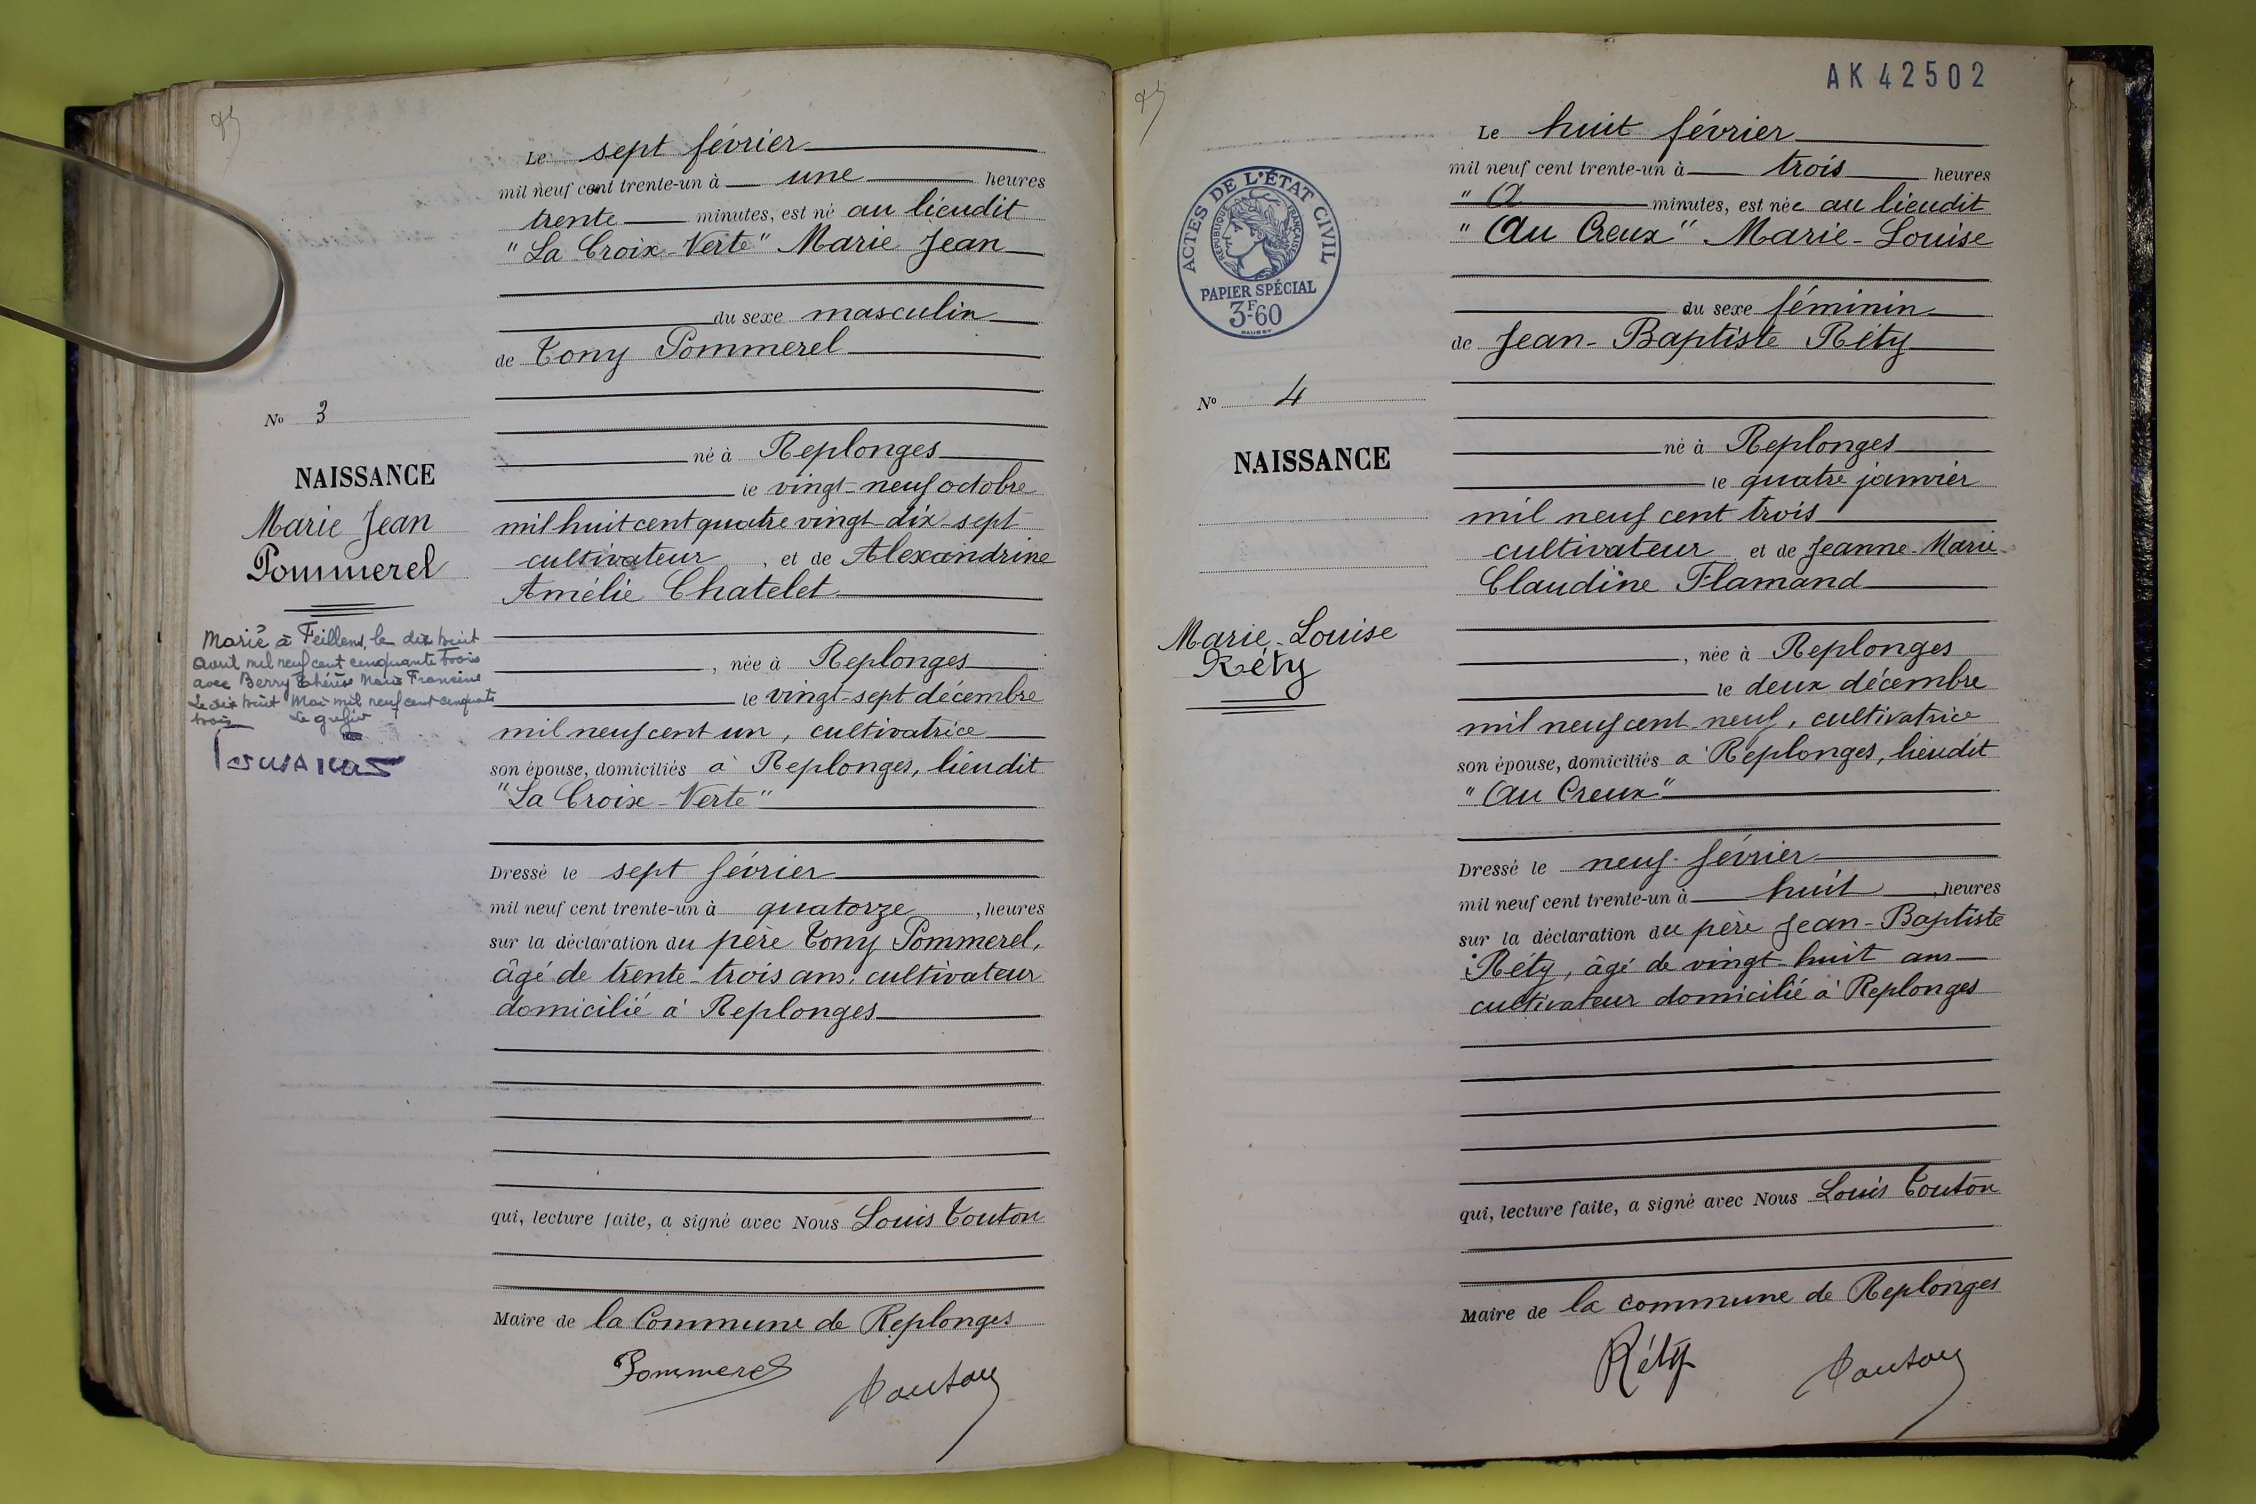 Le sept février
mil neuf cent trente-un à une heures
trente minutes, est né au lieudit
"La Croix-Verte" Marie Jean
du sexe masculin
de Tony Pommerel
né à Replonges
le vingt-neuf octobre
mil huit cent quatre vingt-dix-sept
cultivateur, et de Alexandrine
Amélie Chatelet
, née à Replonges
le vingt-sept décembre
mil neuf cent un, cultivatrice
son épouse, domiciliés à Replonges, lieudit
"La Croix-Verte"
Dressé le sept février
mil neuf cent trente-un à quatorze, heures
sur la déclaration du père Tony Pommerel,
âgé de trente-trois ans, cultivateur
domicilié à Replonges
qui, lecture faite, a signé avec Nous Louis Touton
Maire de la Commune de Replonges
Pommerel
Touton
No 3
NAISSANCE
Marie Jean
Pommerel
Marié à Feillens, le dix huit
avril mil neuf cent cinquante trois
avec Berry Thérèse Marie Francine
Le dix huit Mai mil neuf cent cinquante
trois Le greffier
AK 42502
ACTES DE L'ÉTAT CIVIL
RÉPUBLIQUE FRANÇAISE
PAPIER SPÉCIAL
3F60
No 4
NAISSANCE
Marie-Louise
Réty
Le huit février
mil neuf cent trente-un à trois heures
minutes, est née au lieudit
"Au Creux" Marie-Louise
du sexe féminin
de Jean-Baptiste Réty
né à Replonges
le quatre janvier
mil neuf cent trois
cultivateur et de Jeanne-Marie
Claudine Flamand
, née à Replonges
le deux décembre
mil neuf cent neuf, cultivatrice
son épouse, domiciliés à Replonges, lieudit
"Au Creux"
Dressé le neuf février
mil neuf cent trente-un à huit, heures
sur la déclaration du père Jean-Baptiste
Réty, âgé de vingt-huit ans
cultivateur domicilié à Replonges
qui, lecture faite, a signé avec Nous Louis Touton
Maire de la commune de Replonges
Réty
Touton